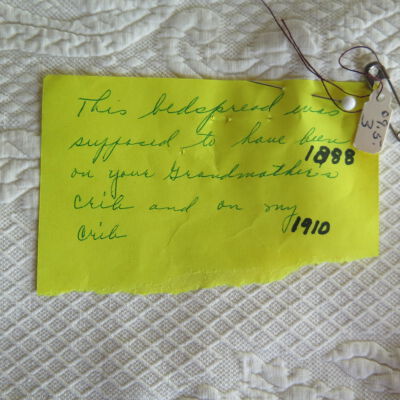 This bedspread was
supposed to have been
1898
on your Grandmother's
crib and on my
1910
crib